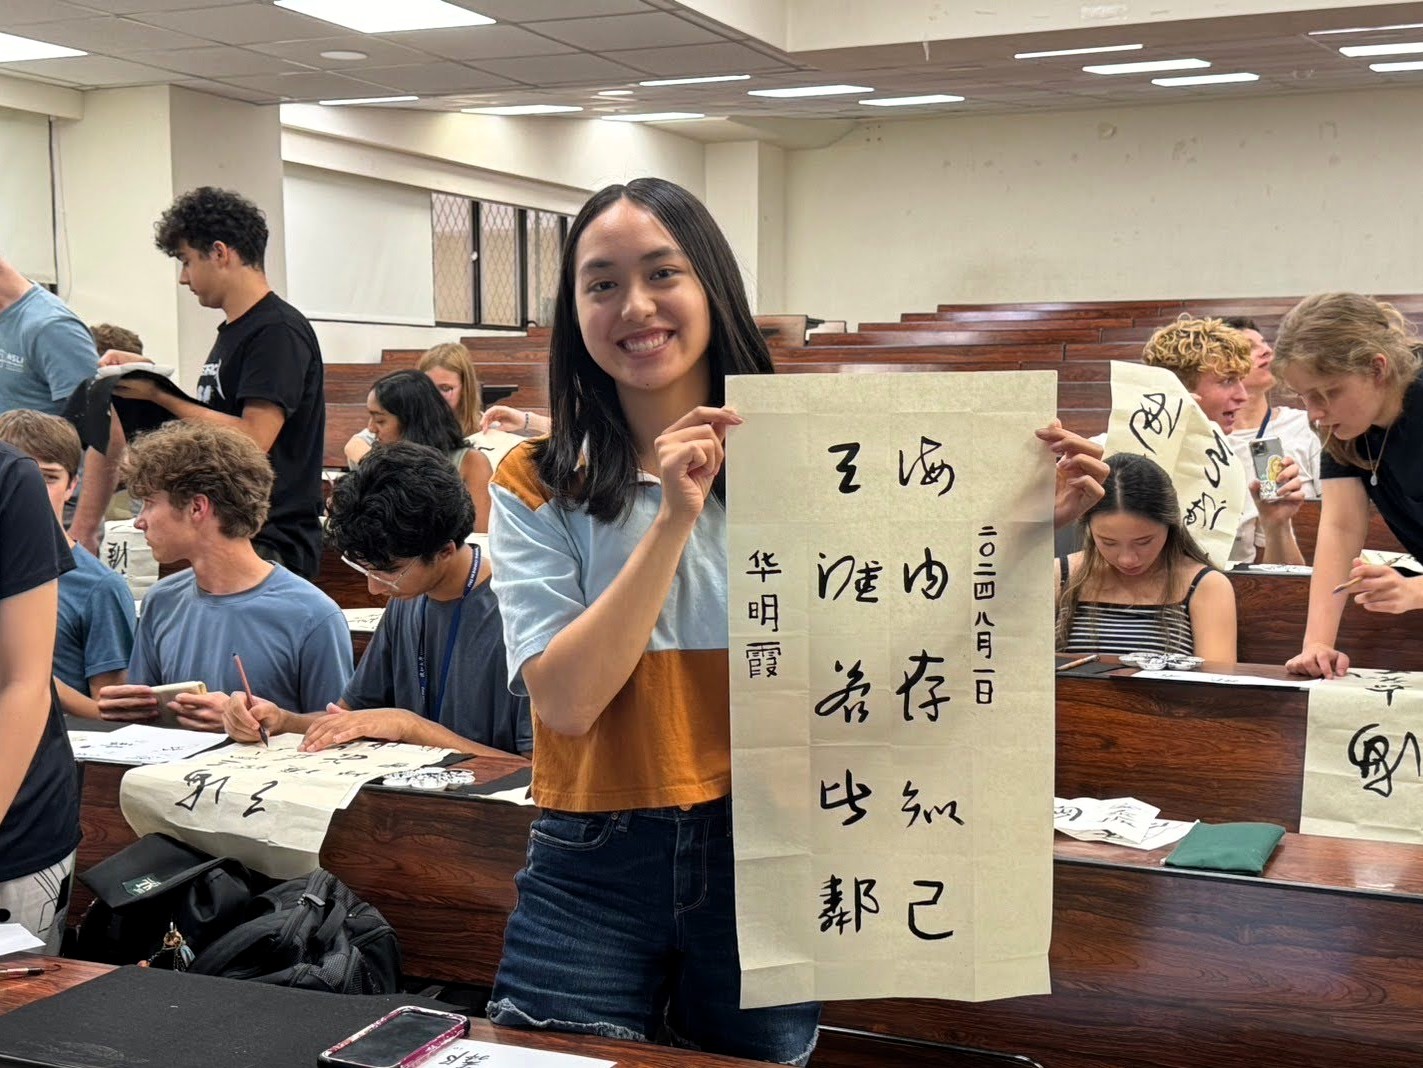 二〇二四八月一日
海内存知己
天涯若比鄰
华明霞